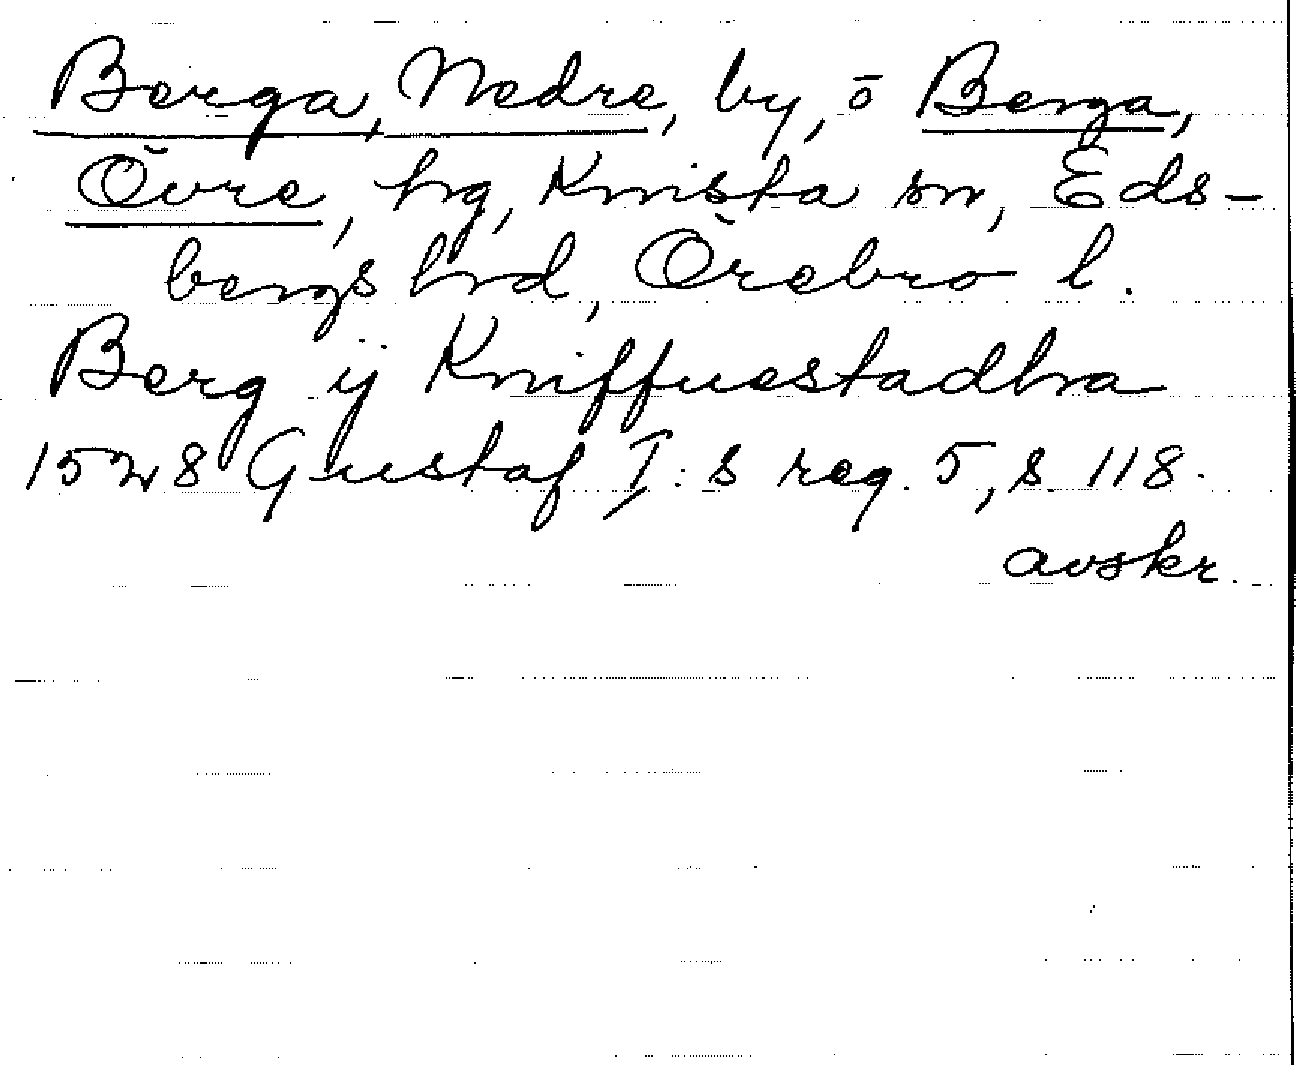 Berga, Nedre, by, o Berga,
Övre, hg, Knista sn, Eds-
bergs hrd, Örebro l.
Berg ij Kniffuestadha
1528 Gustaf I:s reg. 5, s. 118.
avskr.